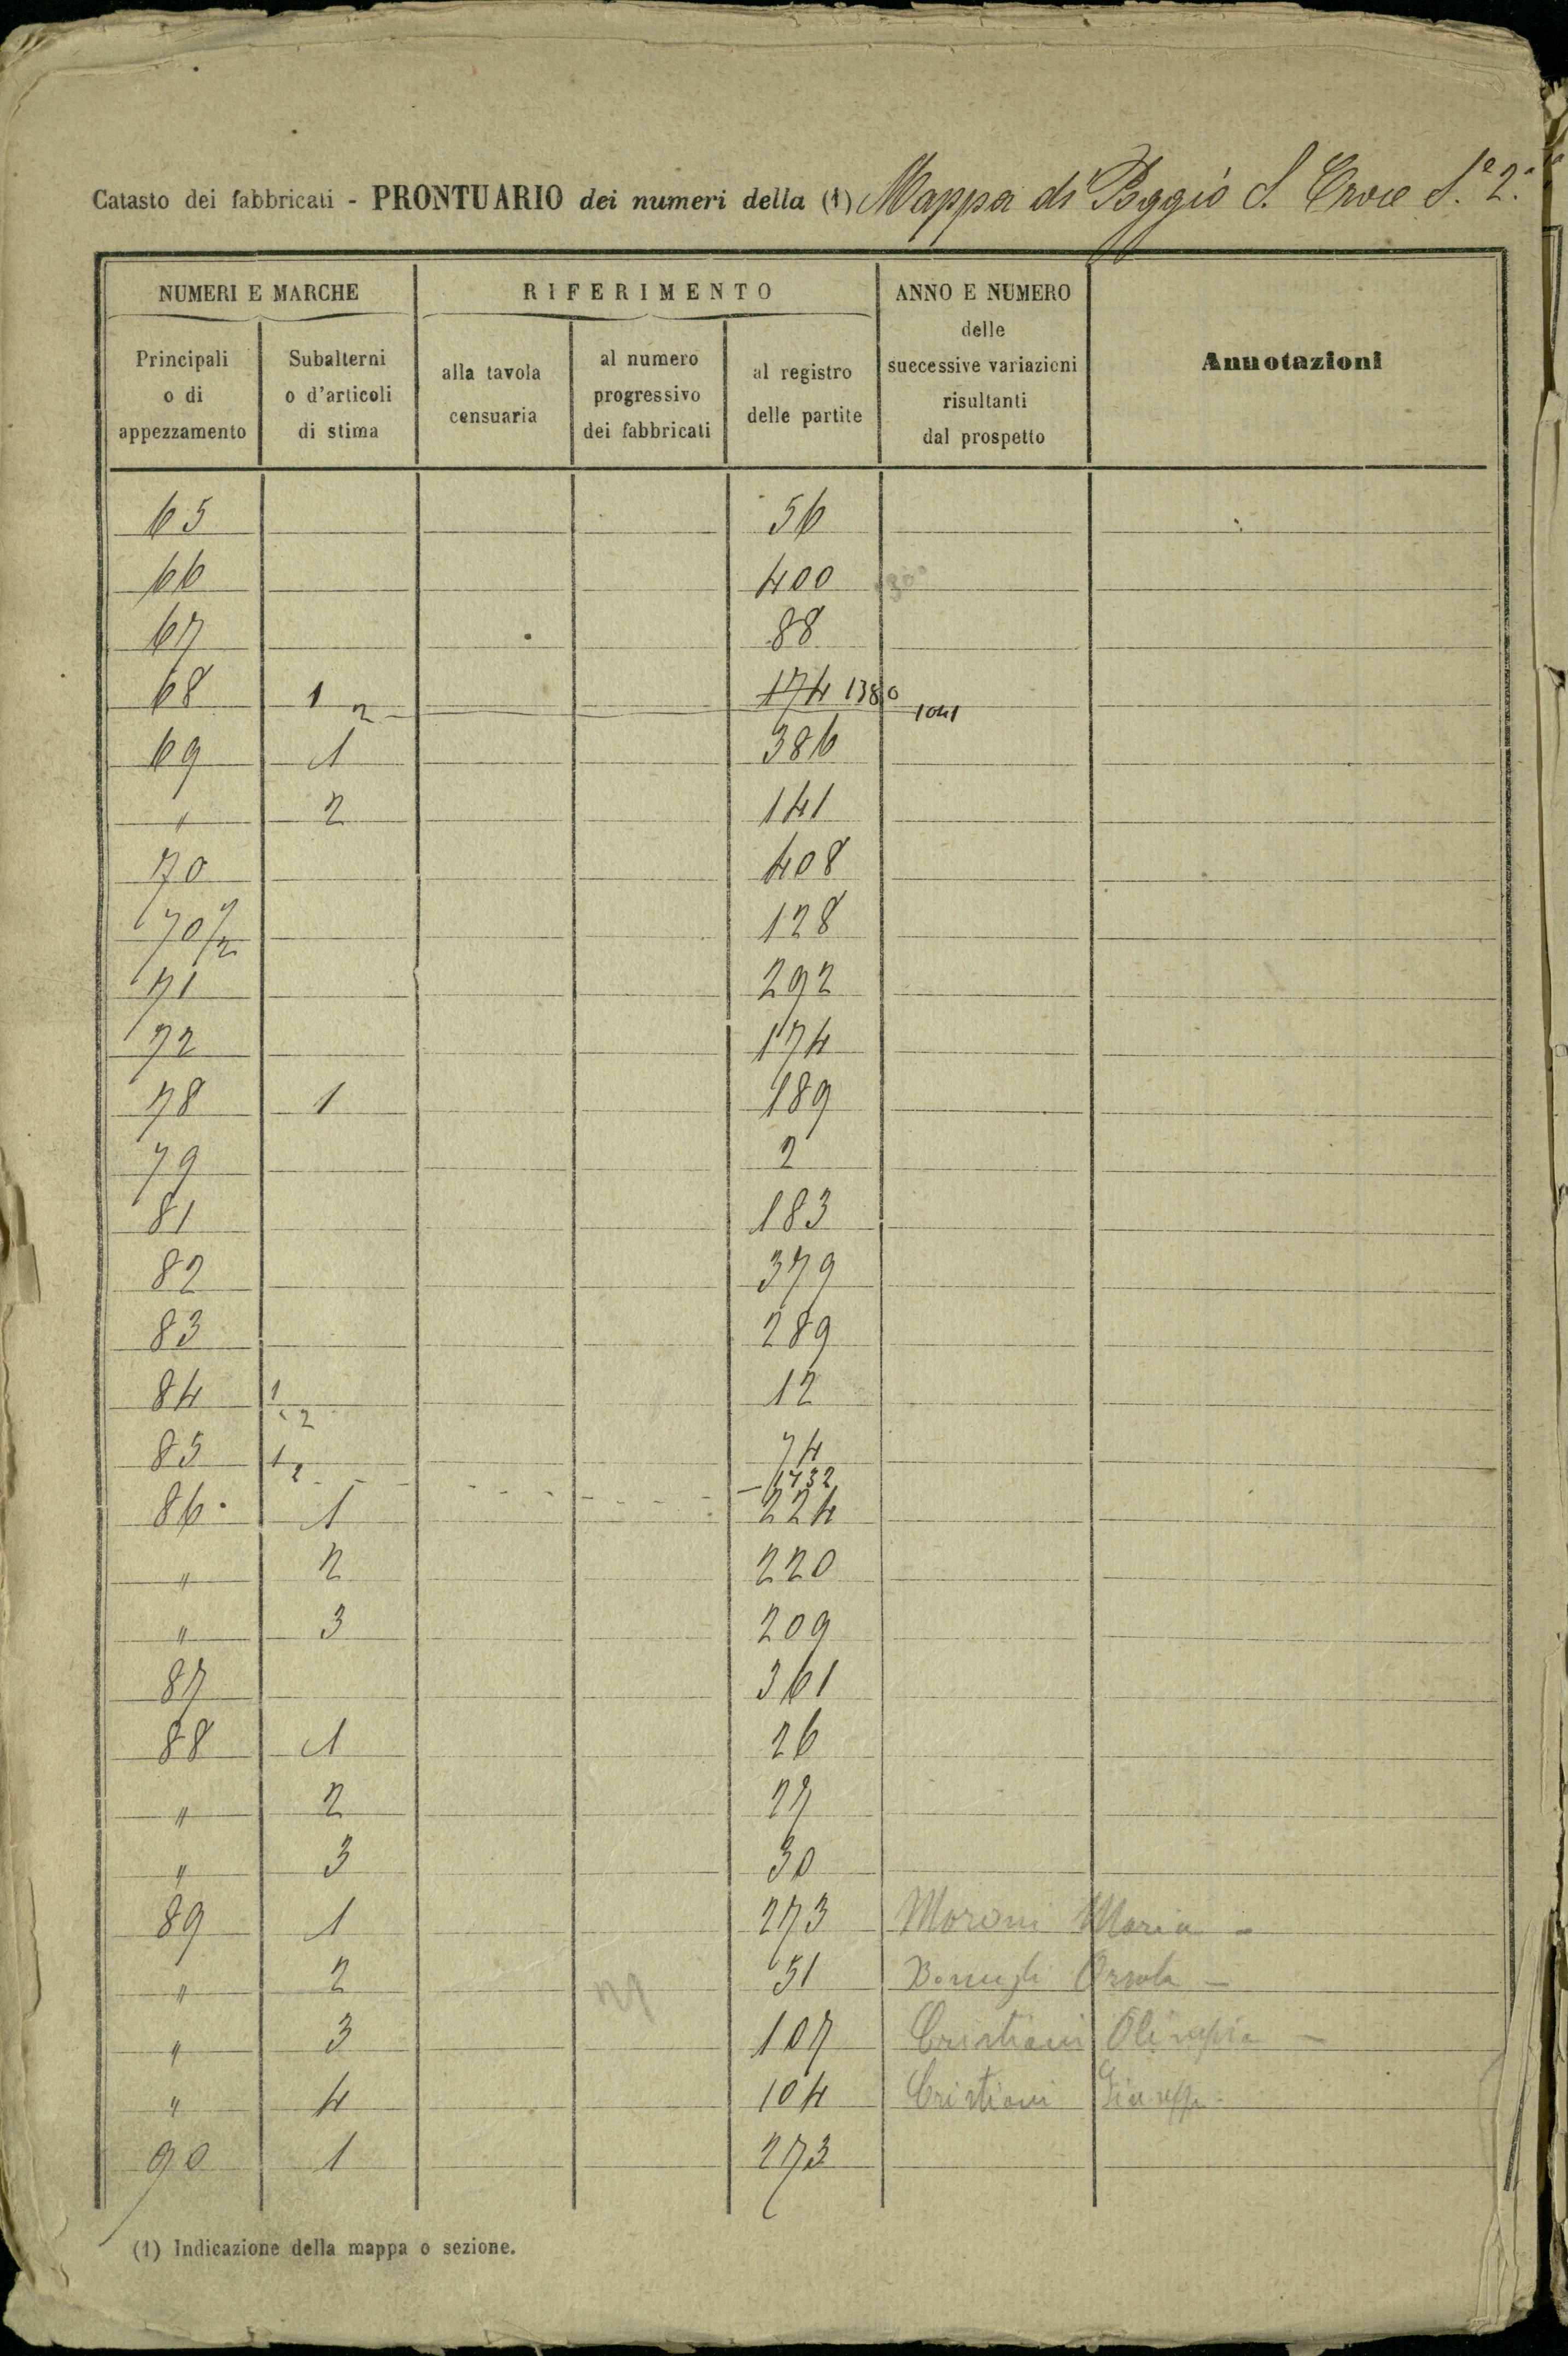 Catasto dei fabbricati - PRONTUARIO dei numeri della (1) Mappa di Poggio S. Croce S.e 2.a
NUMERI E MARCHE
RIFERIMENTO
ANNO E NUMERO
delle
successive variazioni
risultanti
dal prospetto
Annotazioni
Principali
o di
appezzamento
Subalterni
o d'articoli
di stima
alla tavola
censuaria
al numero
progressivo
dei fabbricati
al registro
delle partite
65 56
66 400
67 88
68 1 174 1380
2 1041
69 1 386
" 2 141
70 408
70/2 128
71 292
72 174
78 1 189
79 2
81 183
82 379
83 289
84 1 12
2
85 1 74
2 1732
86 1 224
" 2 220
" 3 209
87 361
88 1 26
" 2 27
" 3 30
89 1 273 Moroni Maria -
" 2 51 Orsola -
" 3 107 Cristiani Olimpia -
" 4 104 Cristiani
90 1 273
(1) Indicazione della mappa o sezione.